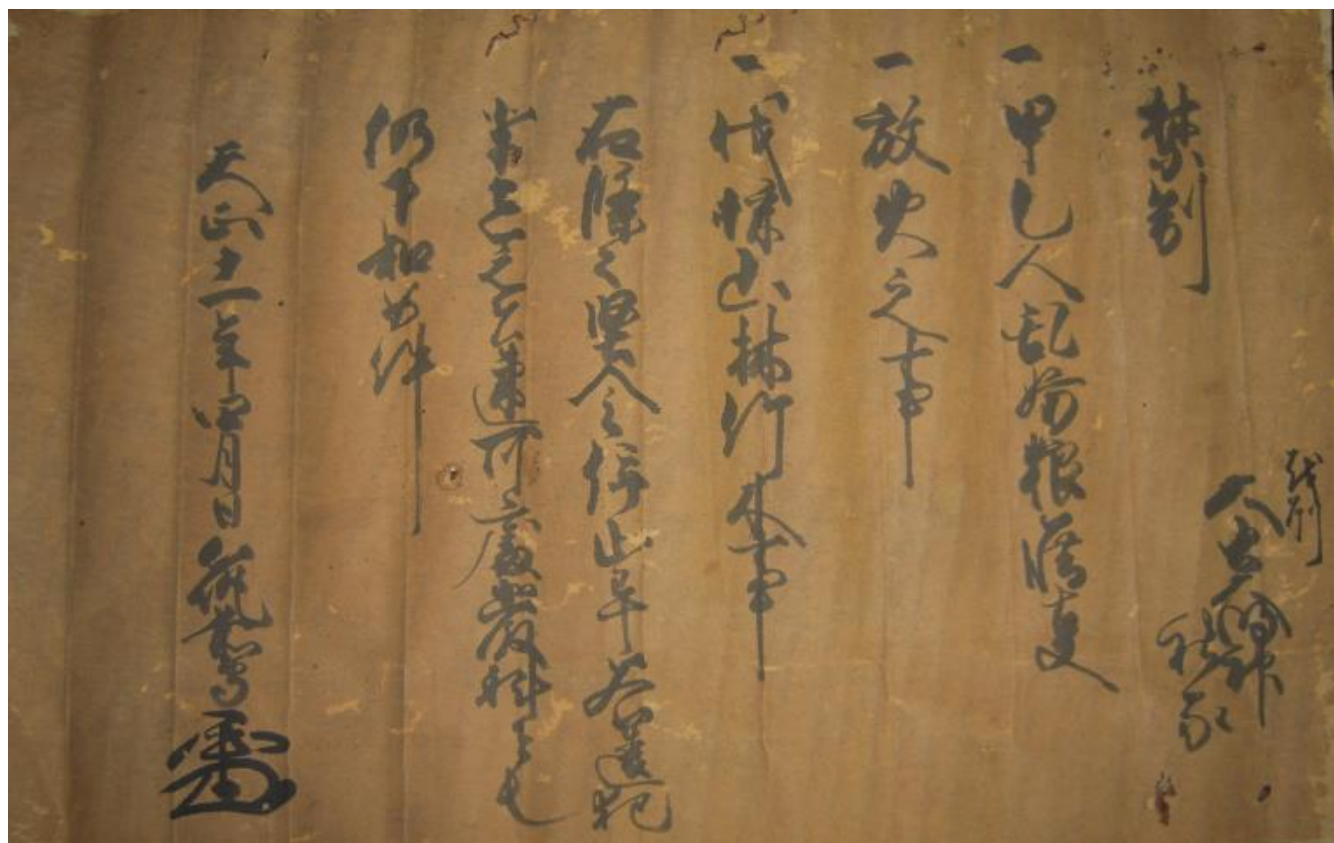 越州
大虫大明神
社家
禁制
一甲乙人乱妨狼藉事
一放火之事
一伐採山林竹木事
右條々堅令停止畢若違犯
輩在之者速可處嚴科者也
仍下知如件
天正十一年四月日筑前守